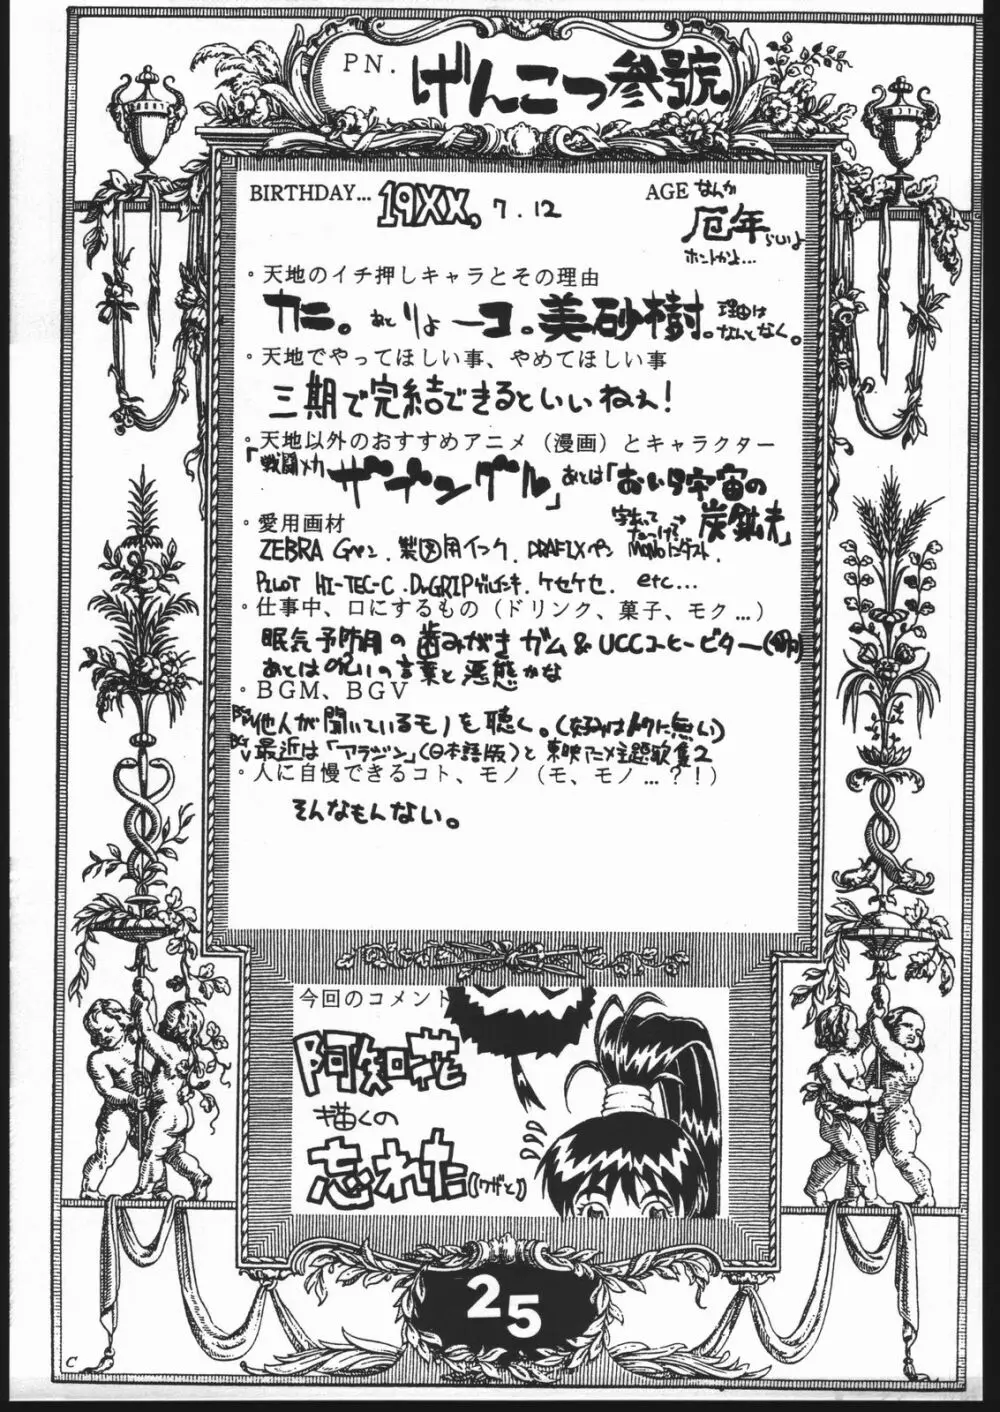 PN. げんこつ参號
BIRTHDAY... 19XX, 7.12
AGE なんか
厄年らしいよ
ホントかよ...
・天地のイチ押しキャラとその理由
カニ。あとりょーコ。美砂樹。理由は
なんとなく。
・天地でやってほしい事、やめてほしい事
三期で完結できるといいねぇ!
・天地以外のおすすめアニメ(漫画)とキャラクター
「戦闘メカ ザブングル」あとは「おいら宇宙の
炭鉱夫」
・愛用画材
ZEBRA Gペン. 製図用インク. DRAFIXペン MONO
PILOT HI-TEC-C. Dr.GRIPゲルインキ. ケセケセ. etc...
・仕事中、口にするもの(ドリンク、菓子、モク...)
眠気予防用の歯みがきガム & UCCコーヒービター
あとは呪いの言葉と悪態かな
・BGM、BGV
BGM 他人が聞いているモノを聴く。(好みは特に無い)
BGV 最近は「アラジン」(日本語版)と東映アニメ主題歌集2
・人に自慢できるコト、モノ(モ、モノ...?!)
そんなもんない。
今回のコメント
阿知花
描くの
忘れた((ワザと))
25
C